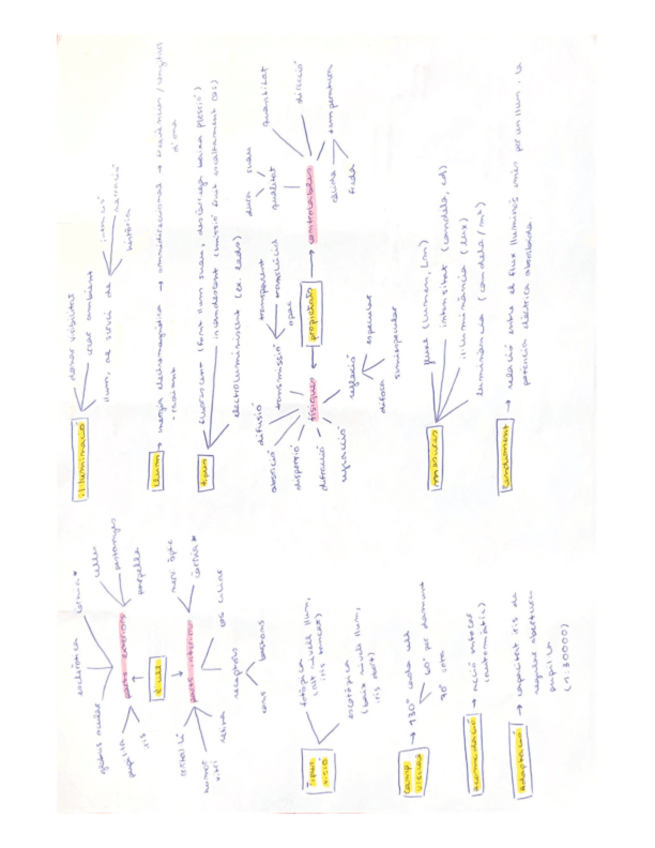 il·luminació
donar visibilitat
crear ambient
llum, al servei de
intenció
narració
història
llum
energia electromagnètica → omnidireccional → freqüència / longitud
d'ona
radiant
tipus
fluorescent (font llum suau, descàrrega baixa pressió)
incandescent (emissió fruit escalfament cos)
electroluminiscent (ex. leds)
propietats
físiques
absorció
difusió
transmissió
transparent
translúcid
opac
dispersió
difracció
refracció
reflexió
difosa
especular
semiespecular
controlables
qualitat
dura
suau
quantitat
direcció
temperatura
càlida
freda
mesures
fluxe (lumen, Lm)
intensitat (candela, cd)
il·luminància (lux)
luminància (candela / m²)
rendiment
relació entre el flux lluminós emès per un llum i la
potència elèctrica absorbida.
l'ull
parts exteriors
globus ocular
escleròtica
còrnia*
celles
pestanyes
parpella
pupil·la
iris
parts interiors
cristal·lí
humor
vitri
retina
receptors
cons
bastons
cos ciliar
còrnia*
nervi òptic
tipus
visió
fotòpica
(alt nivell llum,
iris tancat)
escotòpica
(baix nivell llum,
iris obert)
camp
visual
130° cada ull
60° per damunt
70° sota
acomodació
acció enfocar
(automàtic)
adaptació
capacitat iris de
regular obertura
pupil·la
(1:30000)